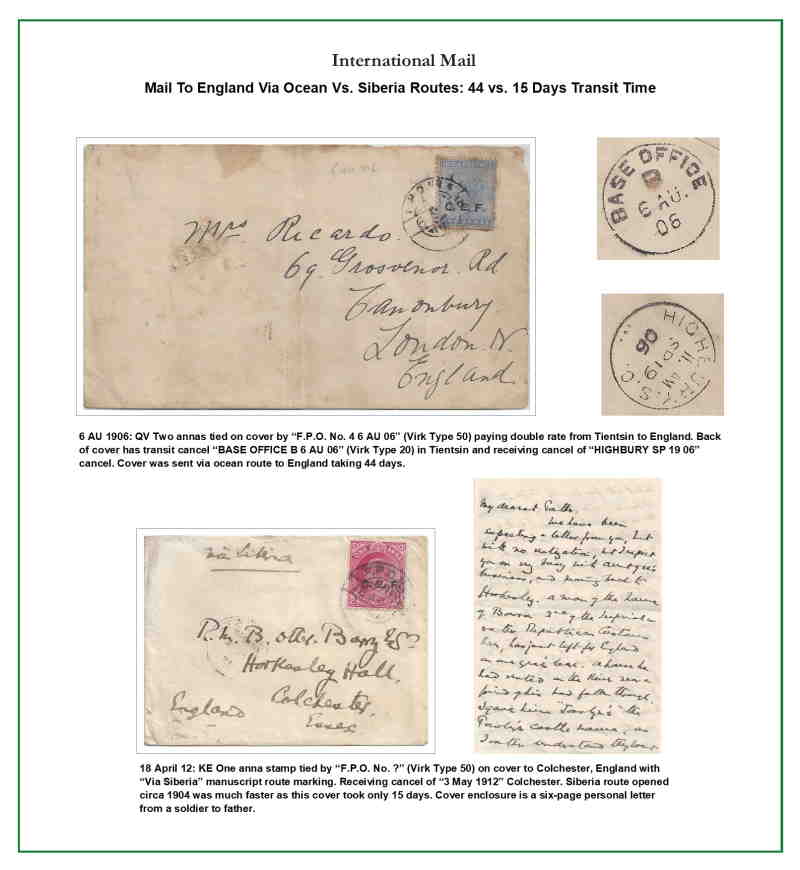 International Mail
Mail To England Via Ocean Vs. Siberia Routes: 44 vs. 15 Days Transit Time
C.E.F.
Mrs Ricardo.
69. Grosvenor. Rd
Canonbury.
London. N.
England.
BASE OFFICE
B
6 AU.
06
HIGHBURY S.O.
SP 19
06
6 AU 1906: QV Two annas tied on cover by “F.P.O. No. 4 6 AU 06” (Virk Type 50) paying double rate from Tientsin to England. Back
of cover has transit cancel “BASE OFFICE B 6 AU 06” (Virk Type 20) in Tientsin and receiving cancel of “HIGHBURY SP 19 06”
cancel. Cover was sent via ocean route to England taking 44 days.
via Siberia
C.E.F.
Horkesley Hall,
Colchester,
England
Essex
My dearest
We have been
expecting a letter from you, but
with no
business, and
Horkesley. a man of the name
of
on the Republican
has just left for England
on one year's leave. a house he
had rented on the River
had fallen through.
I gave him the
castle
I
18 April 12: KE One anna stamp tied by “F.P.O. No. ?” (Virk Type 50) on cover to Colchester, England with
“Via Siberia” manuscript route marking. Receiving cancel of “3 May 1912” Colchester. Siberia route opened
circa 1904 was much faster as this cover took only 15 days. Cover enclosure is a six-page personal letter
from a soldier to father.